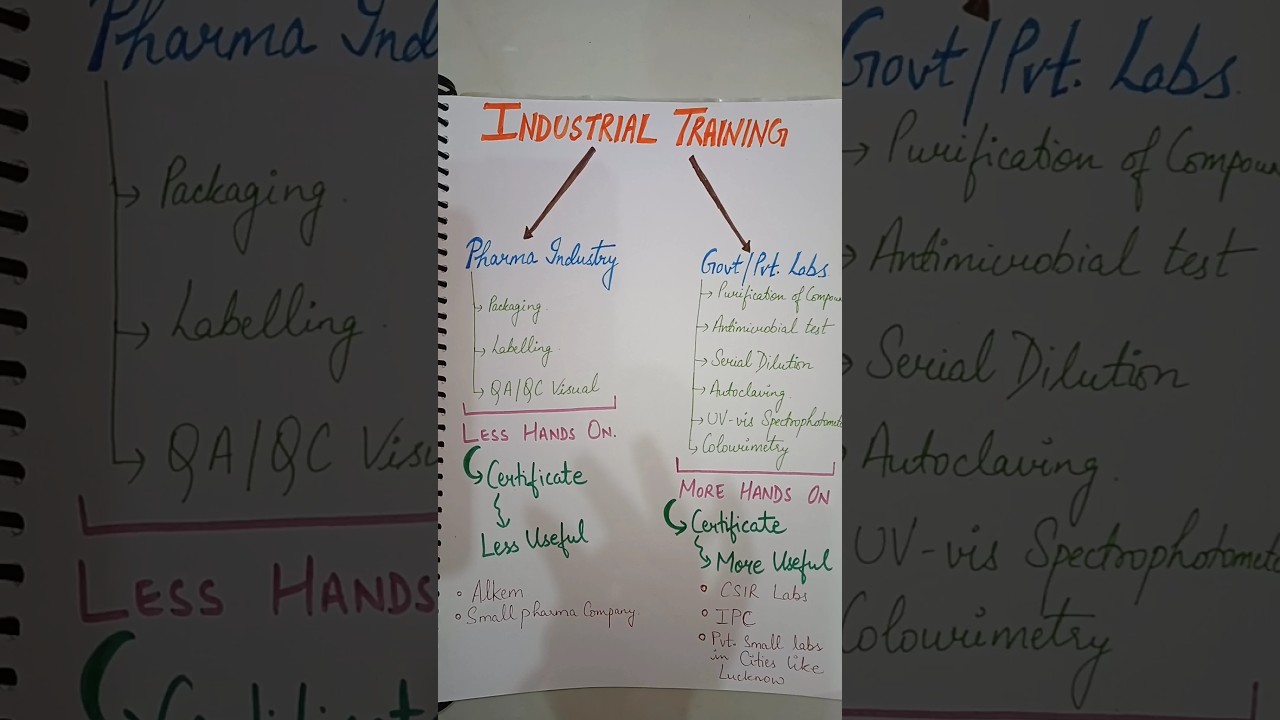 INDUSTRIAL TRAINING
Pharma Industry
Packaging.
Labelling.
QA/QC Visual
LESS HANDS ON.
Certificate
Less Useful
Alkem
Small pharma Company.
Govt/Pvt. Labs
Purification of Compou
Antimicrobial test
Serial Dilution
Autoclaving.
UV-vis Spectrophotomete
Colourimetry
MORE HANDS ON
Certificate
More Useful
CSIR Labs
IPC
Pvt. Small labs
in Cities like
Lucknow
Pharma Ind
Packaging.
Labelling.
QA/QC Visu
LESS HANDS
Certificat
Govt/Pvt. Labs.
Purification of Compoun
Antimicrobial test
Serial Dilution
Autoclaving.
UV-vis Spectrophotomete
Colourimetry